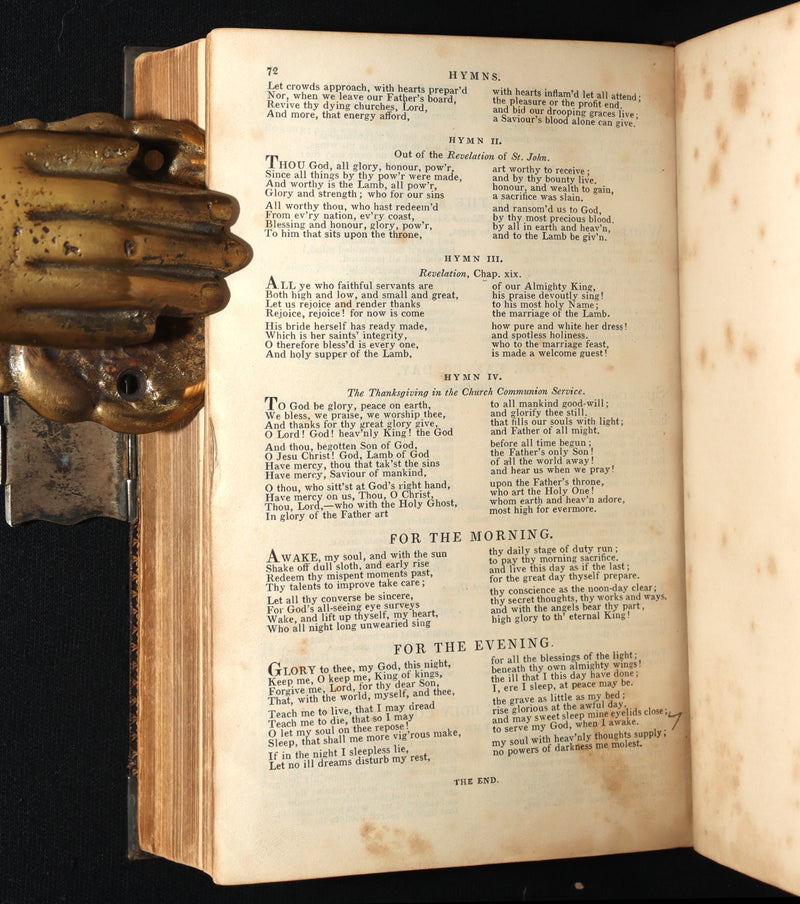 72
HYMNS.
Let crowds approach, with hearts prepar'd with hearts inflam'd let all attend;
Nor, when we leave our Father's board, the pleasure or the profit end.
Revive thy dying churches, Lord, and bid our drooping graces live;
And more, that energy afford, a Saviour's blood alone can give.
HYMN II.
Out of the Revelation of St. John.
THOU God, all glory, honour, pow'r, art worthy to receive;
Since all things by thy pow'r were made, and by thy bounty live.
And worthy is the Lamb, all pow'r, honour, and wealth to gain,
Glory and strength; who for our sins a sacrifice was slain.
All worthy thou, who hast redeem'd and ransom'd us to God,
From ev'ry nation, ev'ry coast, by thy most precious blood.
Blessing and honour, glory, pow'r, by all in earth and heav'n,
To him that sits upon the throne, and to the Lamb be giv'n.
HYMN III.
Revelation, Chap. xix.
ALL ye who faithful servants are of our Almighty King,
Both high and low, and small and great, his praise devoutly sing!
Let us rejoice and render thanks to his most holy Name;
Rejoice, rejoice! for now is come the marriage of the Lamb.
His bride herself has ready made, how pure and white her dress!
Which is her saints' integrity, and spotless holiness.
O therefore bless'd is every one, who to the marriage feast,
And holy supper of the Lamb, is made a welcome guest!
HYMN IV.
The Thanksgiving in the Church Communion Service.
TO God be glory, peace on earth, to all mankind good-will;
We bless, we praise, we worship thee, and glorify thee still.
And thanks for thy great glory give, that fills our souls with light;
O Lord! God! heav'nly King! the God and Father of all might.
And thou, begotten Son of God, before all time begun;
O Jesu Christ! God, Lamb of God the Father's only Son!
Have mercy, thou that tak'st the sins of all the world away!
Have mercy, Saviour of mankind, and hear us when we pray!
O thou, who sitt'st at God's right hand, upon the Father's throne,
Have mercy on us, Thou, O Christ, who art the Holy One!
Thou, Lord,—who with the Holy Ghost, whom earth and heav'n adore,
In glory of the Father art most high for evermore.
FOR THE MORNING.
AWAKE, my soul, and with the sun thy daily stage of duty run;
Shake off dull sloth, and early rise to pay thy morning sacrifice.
Redeem thy mispent moments past, and live this day as if the last;
Thy talents to improve take care; for the great day thyself prepare.
Let all thy converse be sincere, thy conscience as the noon-day clear;
For God's all-seeing eye surveys thy secret thoughts, thy works and ways.
Wake, and lift up thyself, my heart, and with the angels bear thy part,
Who all night long unwearied sing high glory to th' eternal King!
FOR THE EVENING.
GLORY to thee, my God, this night, for all the blessings of the light;
Keep me, O keep me, King of kings, beneath thy own almighty wings!
Forgive me, Lord, for thy dear Son, the ill that I this day have done;
That, with the world, myself, and thee, I, ere I sleep, at peace may be.
Teach me to live, that I may dread the grave as little as my bed;
Teach me to die, that so I may rise glorious at the awful day.
O let my soul on thee repose! and may sweet sleep mine eyelids close;
Sleep, that shall me more vig'rous make, to serve my God, when I awake.
If in the night I sleepless lie, my soul with heav'nly thoughts supply;
Let no ill dreams disturb my rest, no powers of darkness me molest.
THE END.